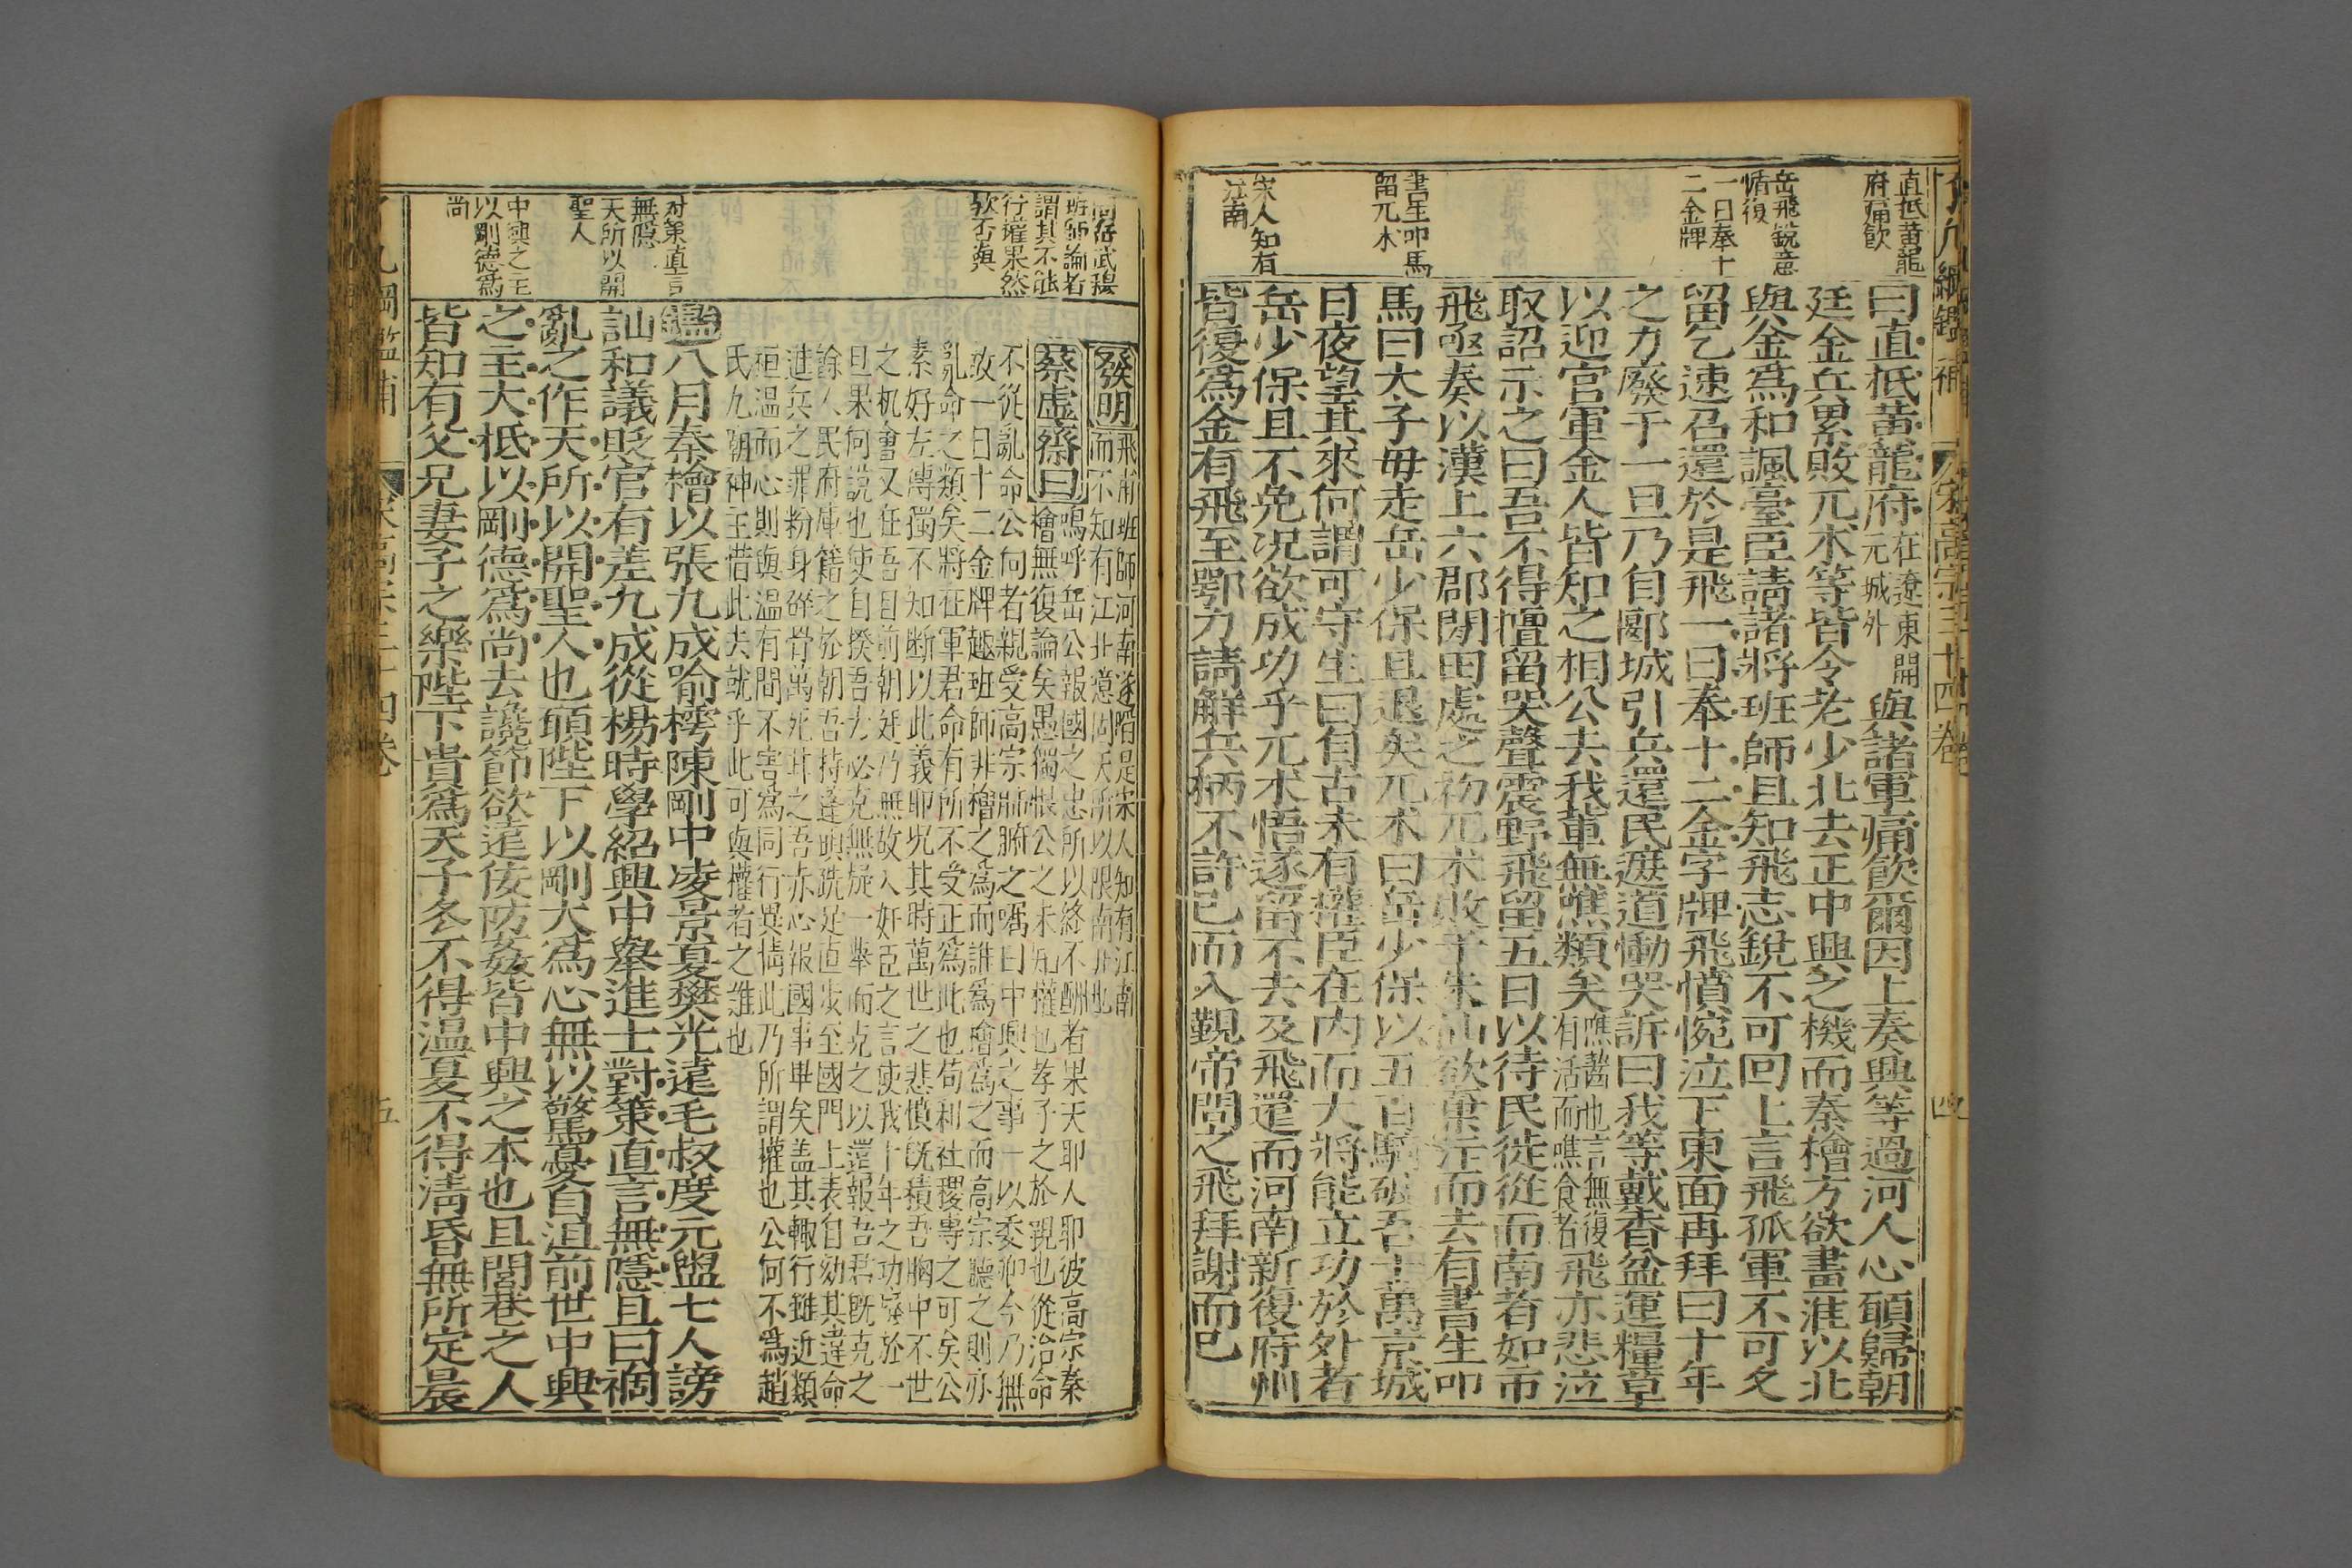 了凡綱鑑補
宋高宗三十四卷
四
直抵黃龍
府痛飲
岳飛銳意
恢復
一日奉十
二金牌
書生叩馬
留兀朮
宋人知有
江南
曰直抵黃龍府在遼東開
元城外與諸軍痛飲爾因上奏興等過河人心願歸朝
廷金兵累敗兀朮等皆令老少北去正中興之機而秦檜方欲畫淮以北
與金爲和諷臺臣請諸將班師且知飛志銳不可回上言飛孤軍不可久
留乞速召還於是飛一日奉十二金字牌飛憤惋泣下東面再拜曰十年
之力廢于一旦乃自郾城引兵還民遮道慟哭訴曰我等戴香盆運糧草
以迎官軍金人皆知之相公去我輩無噍類矣噍齧也言無復
有活而噍食者飛亦悲泣
取詔示之曰吾不得擅留哭聲震野飛留五日以待民徙從而南者如市
飛亟奏以漢上六郡閒田處之初兀朮敗于朱仙欲棄汴而去有書生叩
馬曰太子毋走岳少保且退矣兀朮曰岳少保以五百騎破吾十萬京城
日夜望其來何謂可守生曰自古未有權臣在内而大將能立功於外者
岳少保且不免况欲成功乎兀朮悟遂留不去及飛還而河南新復府州
皆復爲金有飛至鄂力請解兵柄不許已而入覲帝問之飛拜謝而已
班師論者
謂其不能
行權果然
欤否與
對策直言
無隱
天所以開
聖人
中興之主
以剛德爲
尚
發明飛前班師河南遂陷是宋人知有江南
而不知有江北意固天所以限南北也
蔡虛齋曰嗚呼岳公報國之忠所以終不酬者果天耶人耶彼高宗秦
檜無復論矣愚獨恨公之未能權也孝子之於親也從治命
不從亂命公向者親受高宗肺腑之囑曰中興之事一以委卿今乃無
故一日十二金牌趣班師非檜之爲而誰爲檜爲之而高宗聽之則亦
亂命之類矣將在軍君命有所不受正爲此也苟利社稷專之可矣公
素好左傳獨不知断以此義耶况其時萬世之悲憤既積吾胸中不世
之机會又在吾目前朝廷乃無故入奸臣之言使我十年之功廢於一
旦果何說也使自揆吾力必克無疑一舉而克之以還報吾君既克之
餘人民府庫籍之於朝吾持蓬頭跣足直步至國門上表自劾其違命
進兵之罪粉身碎骨萬死甘之吾赤心報國事畢矣盖其轍行雖近類
桓溫而心則與溫有間不害爲同行異情此乃所謂權也公何不爲趙
氏九朝神主惜此去就乎此可與權者之難也
鑑八月秦檜以張九成喻樗陳剛中凌景夏樊光遠毛叔度元盥七人謗
訕和議貶官有差九成從楊時學紹興中舉進士對策直言無隱且曰禍
亂之作天所以開聖人也願陛下以剛大爲心無以驚憂自沮前世中興
之主大抵以剛德爲尚去讒節欲遠佞防姦皆中興之本也且閭巷之人
皆知有父兄妻子之樂陛下貴爲天子冬不得温夏不得清昏無所定晨
五